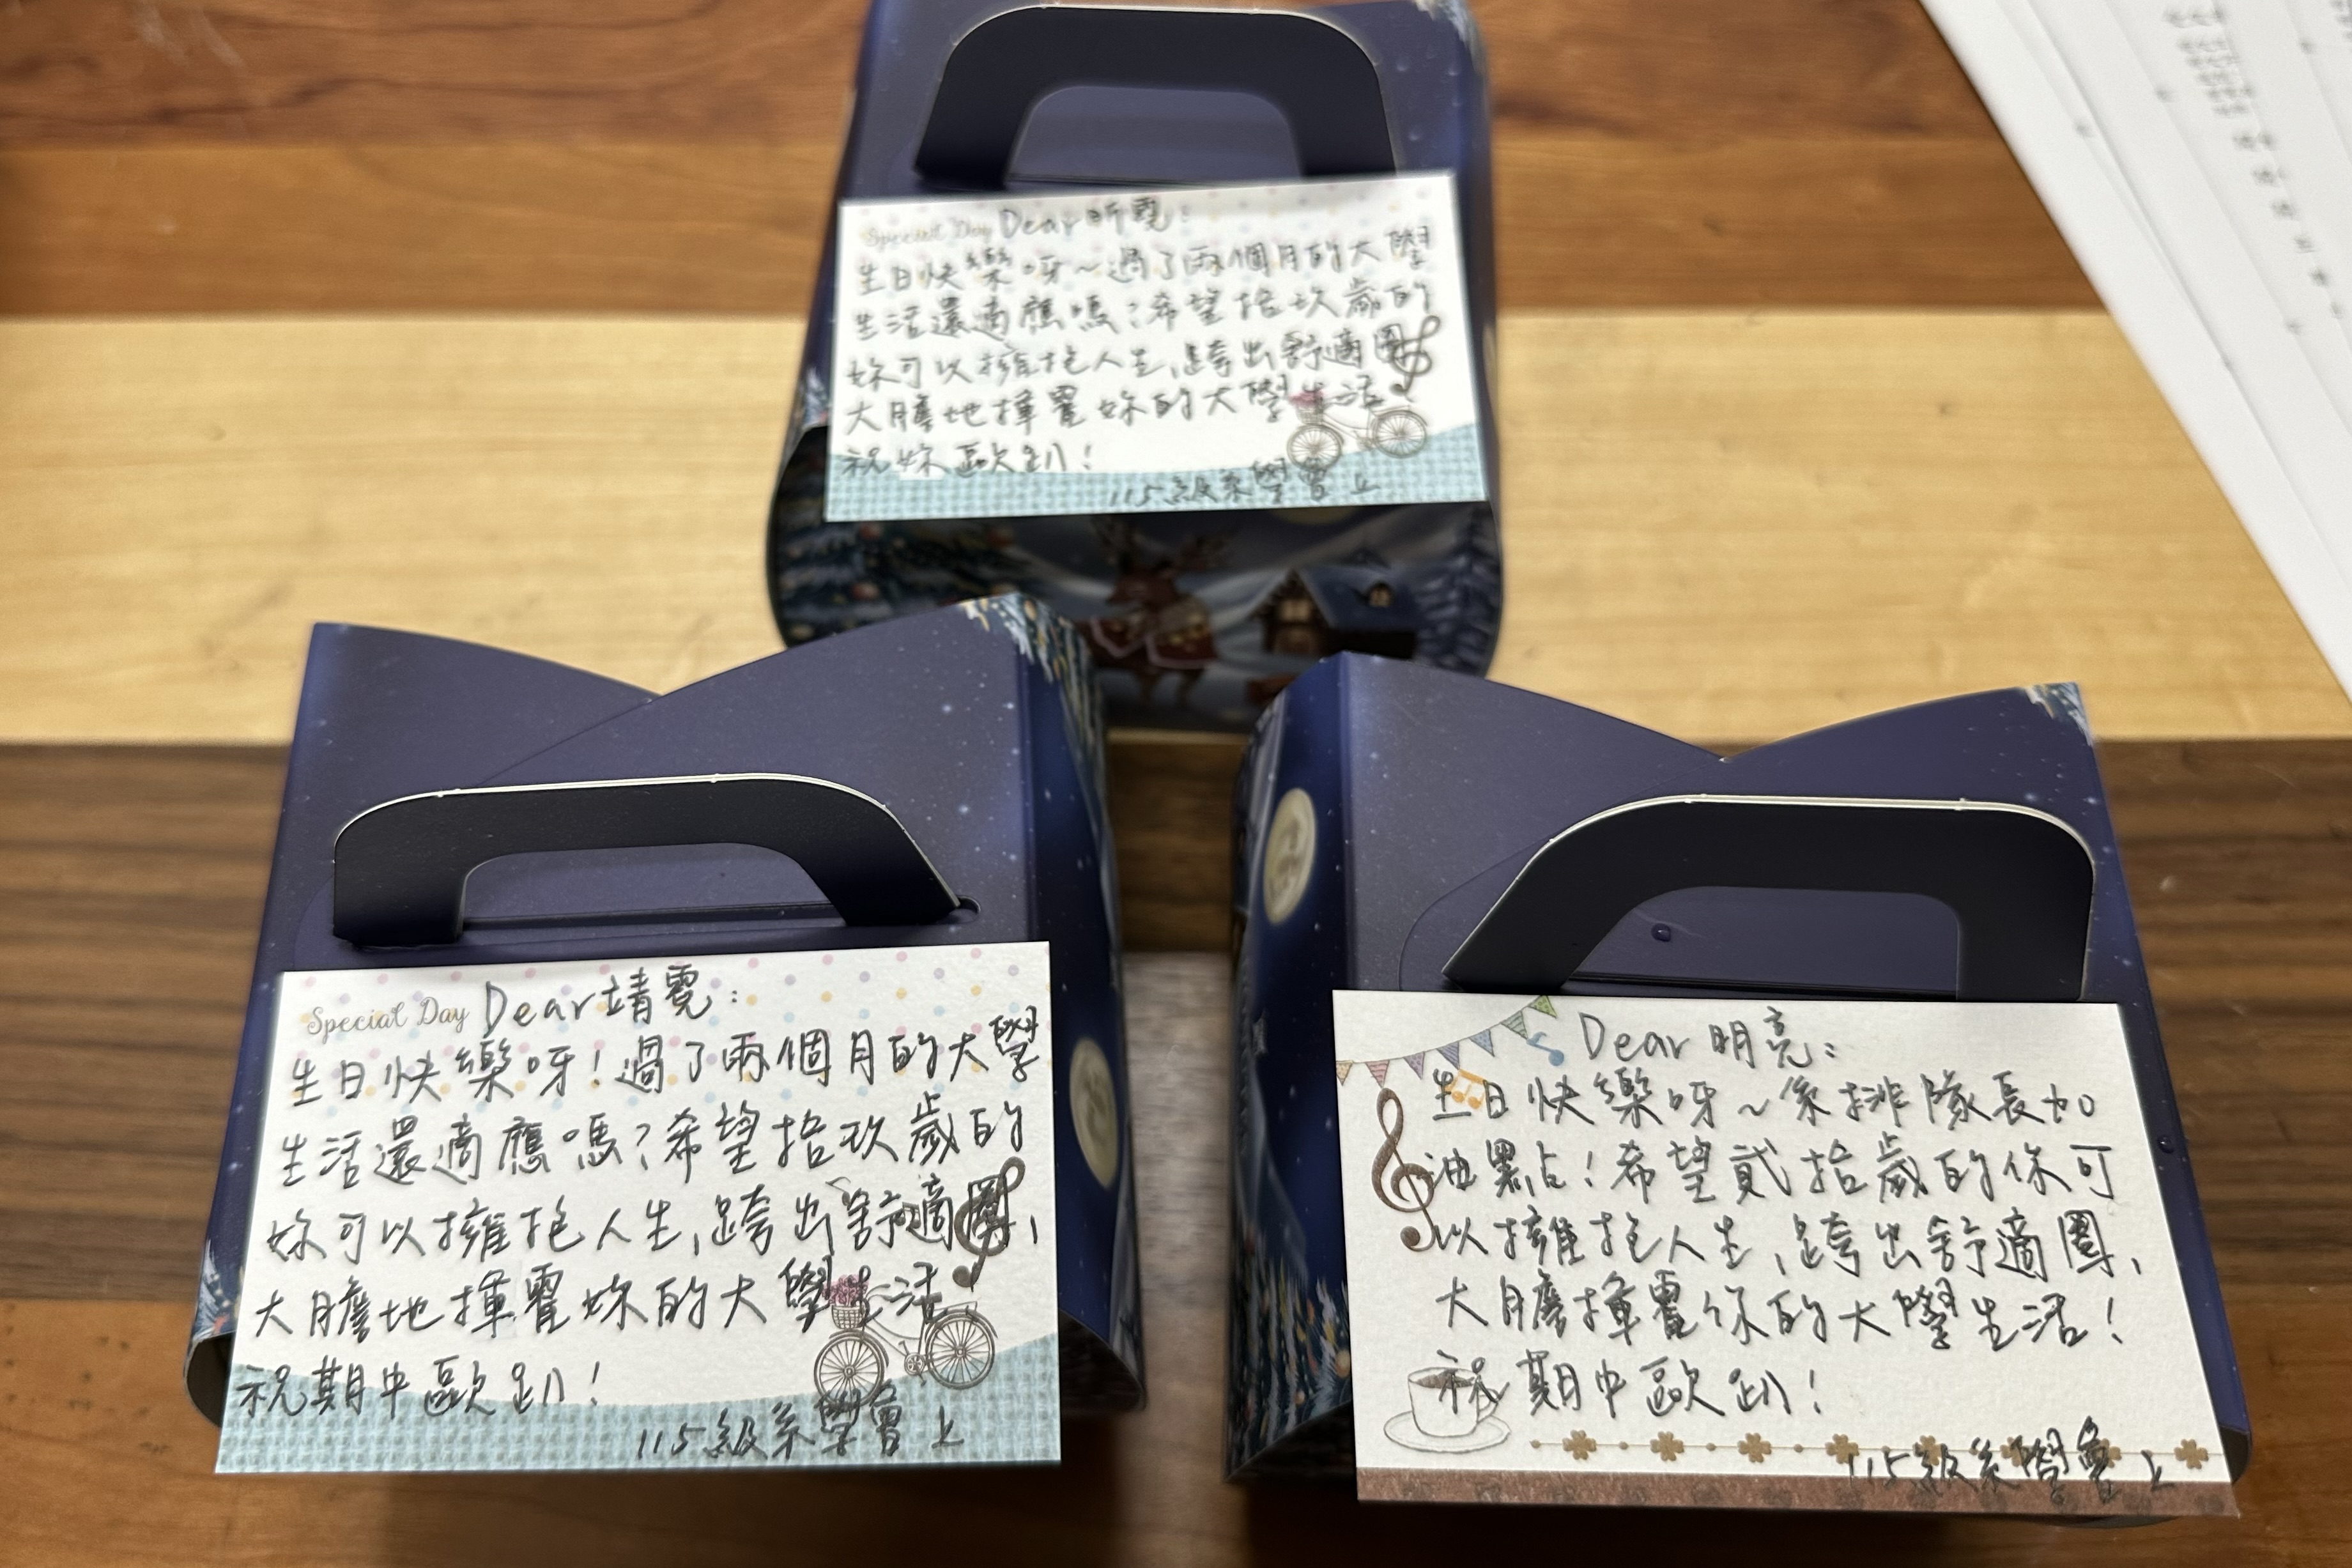 Special Day Dear 昕霓：
生日快樂呀～過了兩個月的大學
生活還適應嗎？希望拾玖歲的
妳可以擁抱人生，跨出舒適圈
大膽地揮霍妳的大學生活！
祝妳歐趴！
115級系學會上
Special Day Dear 靖霓：
生日快樂呀！過了兩個月的大學
生活還適應嗎？希望拾玖歲的
妳可以擁抱人生，跨出舒適圈，
大膽地揮霍妳的大學生活
祝期中歐趴！
115級系學會上
Dear 明亮：
生日快樂呀～系排隊長加
油點！希望貳拾歲的你可
以擁抱人生，跨出舒適圈，
大膽揮霍你的大學生活！
祝期中歐趴！
115級系學會上